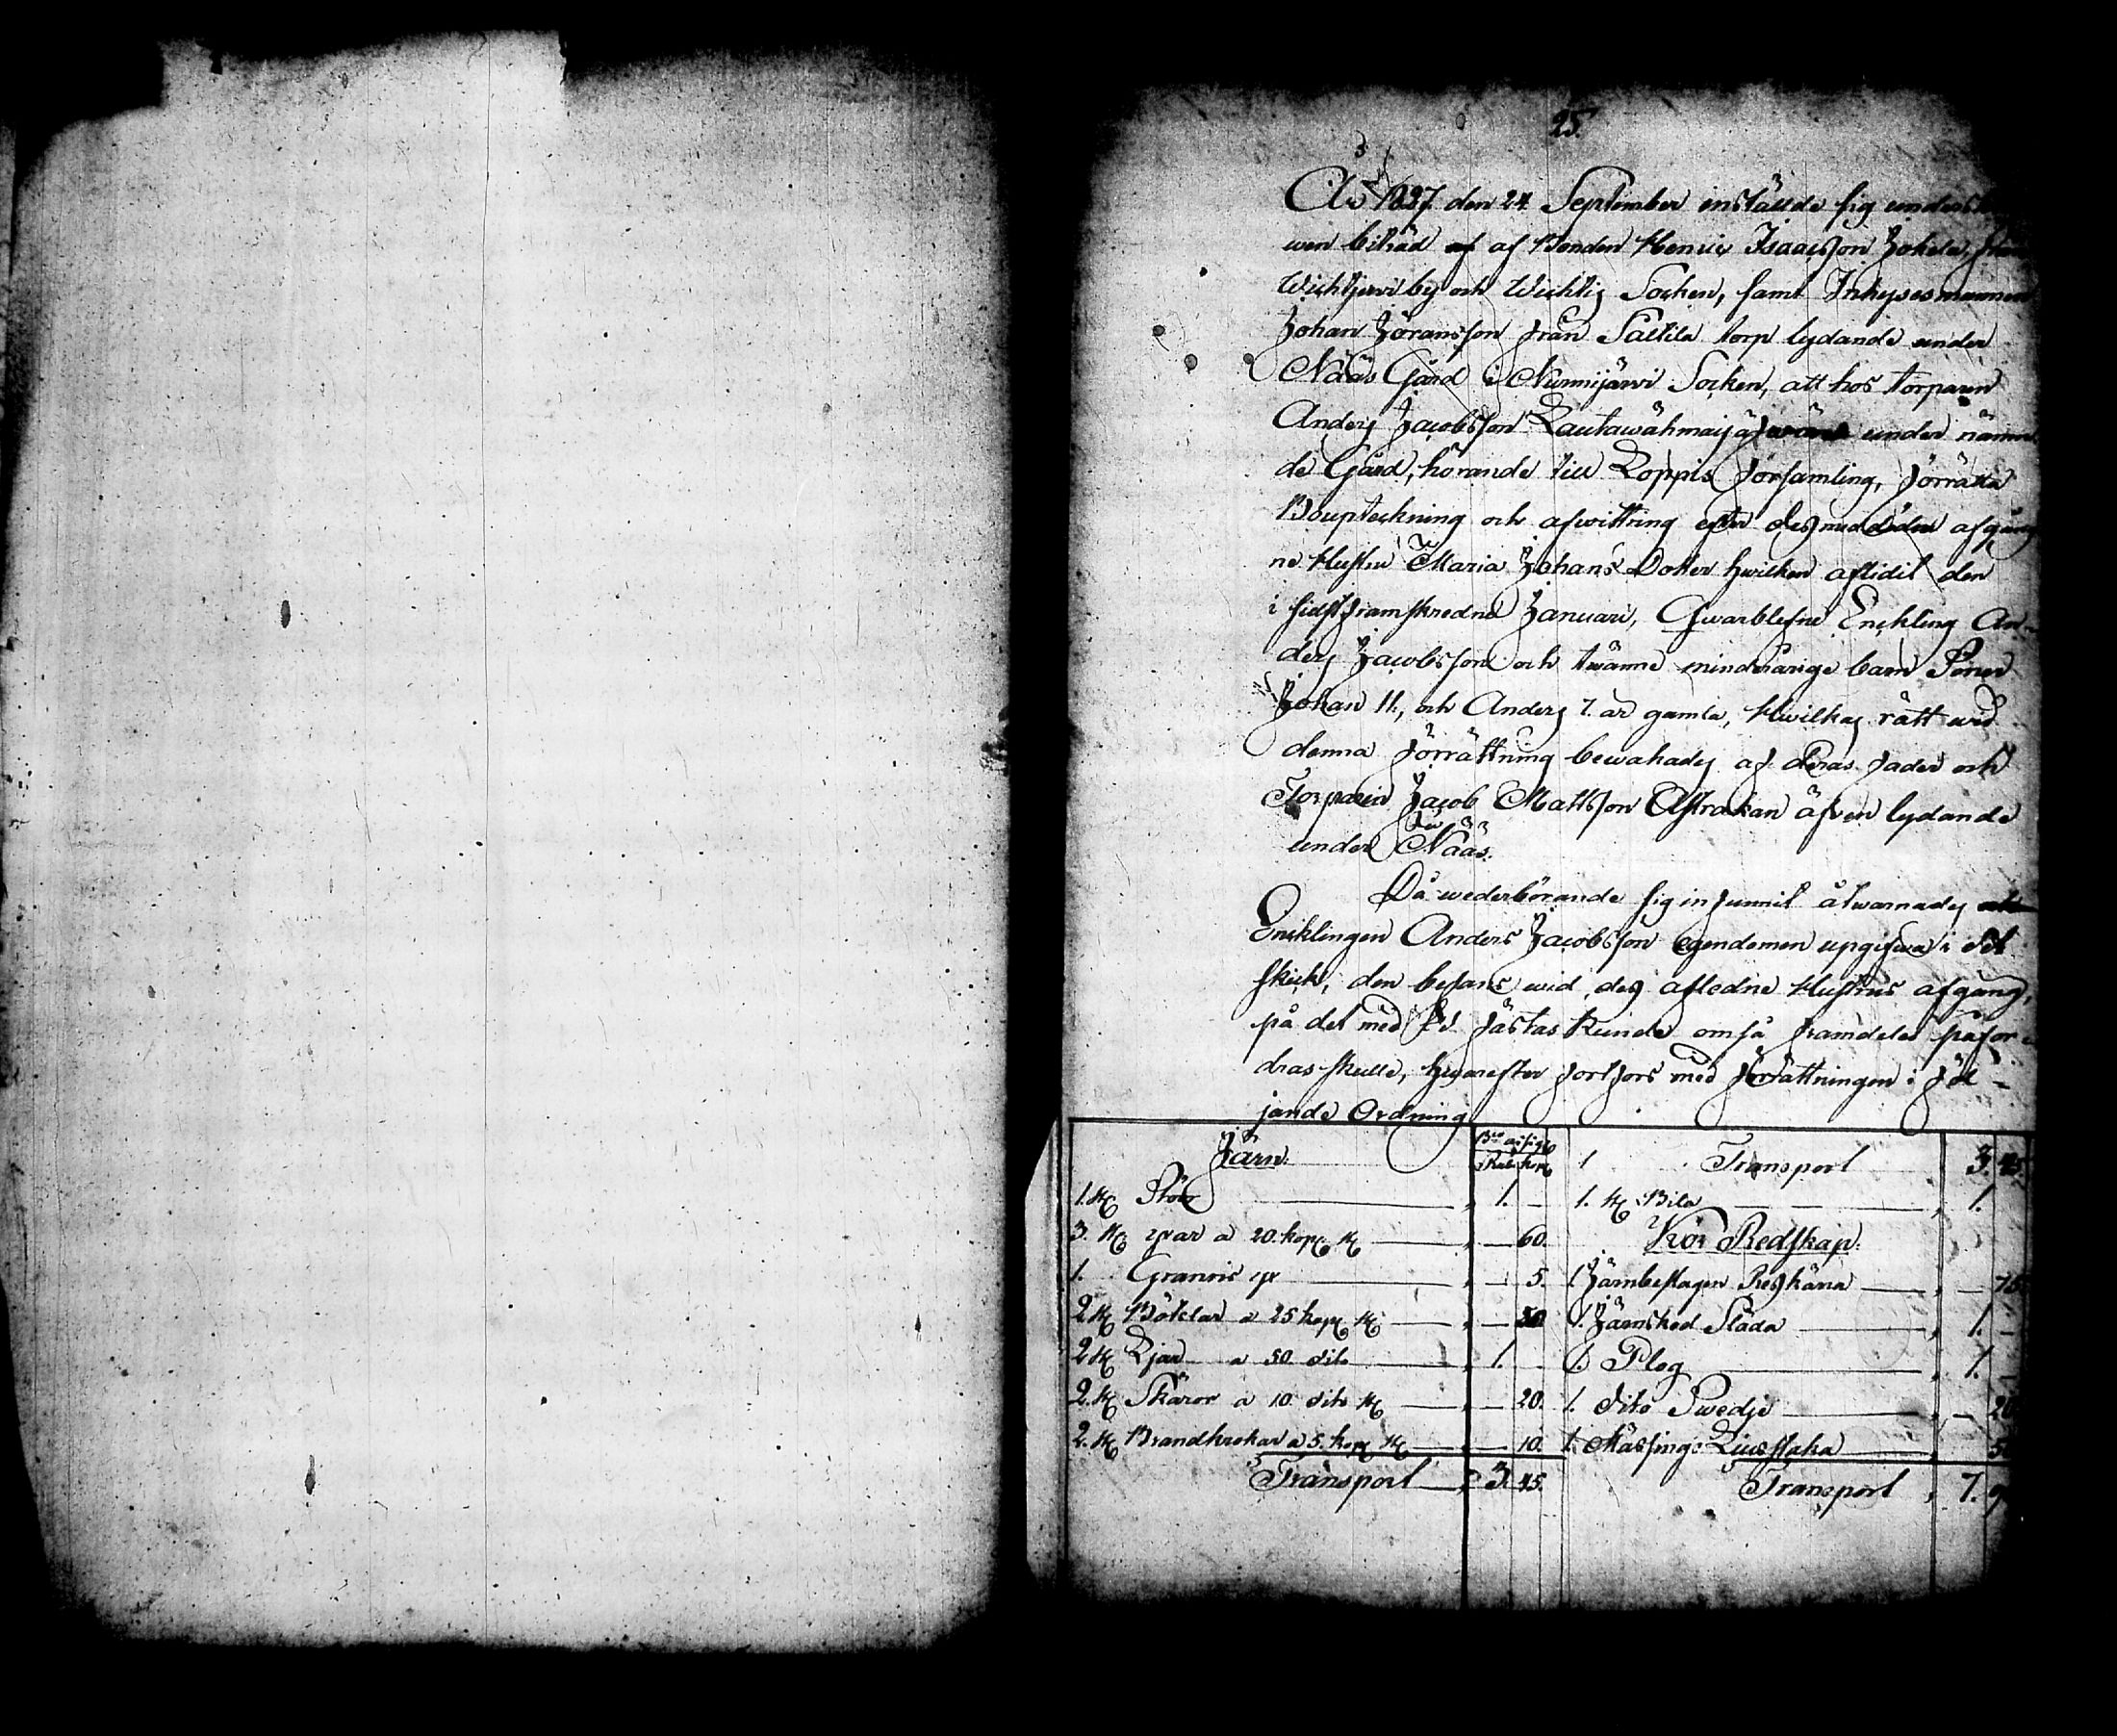 25.
År 1827. den 24 September inställde sig underskre
wen biträd af af Bonden Henric Isaacsson Jokela, från
Wichtjerwi by och Wichtis Socken, samt Inhysesmannen
Johan Jöransson från Saltila torp lydande under
Nääs Gård i Nurmijärwi Socken, att hos torparen
Anders Jacobsson Lautawähmaijä under nämn
de Gård, hörande till Loppis församling, förrätta
Boupteckning och afwittring efter des med döden afgång
ne Hustru Maria Johans Dotter hwilken aflidit den
i sidstframskredne Januari, Qwarblefne Enckling An-
ders Jacobsson och twänne minderårige barn Söner
Johan 11, och Anders 7. år gamla, Hwilkas rätt wid
denna förrättning bewakades af deras fader och
Torparen Jacob Mattsson Astrakan äfven lydande
under Nääs.
Då wederbörande sig infunnit åtwarnades
Encklingen Anders Jacobsson egendomen upgifwa i det
skick, den befans wid des afledne Hustrus afgång,
på det med Ed fästas kunde om så framdeles påfor-
dras skulle, hwarefter fortfors med förrättningen i föl-
jande Ordning
Järn. Rub. kop. 1 Transport 3. 45.
1. st Stör 1. — 1. st Bila 1.
3. st yxar a 20. kop. st — 60. Kör Redskap.
1. Granris yx — 5. 1 Järnbeslagen Reskärra
2 st Böklar a 25 kop st — 50 1. Järnskod Släda 1. —
2 st Ljar a 50 dito 1. 1. Plog 1. —
2. st Skäror a 10 dito st — 20. 1. dito Swedje — 20
2. st Brandkrokar a 5. kop st — 10. 1. Mässings Ljusstaka 50
Transport 3. 45. Transport 7.